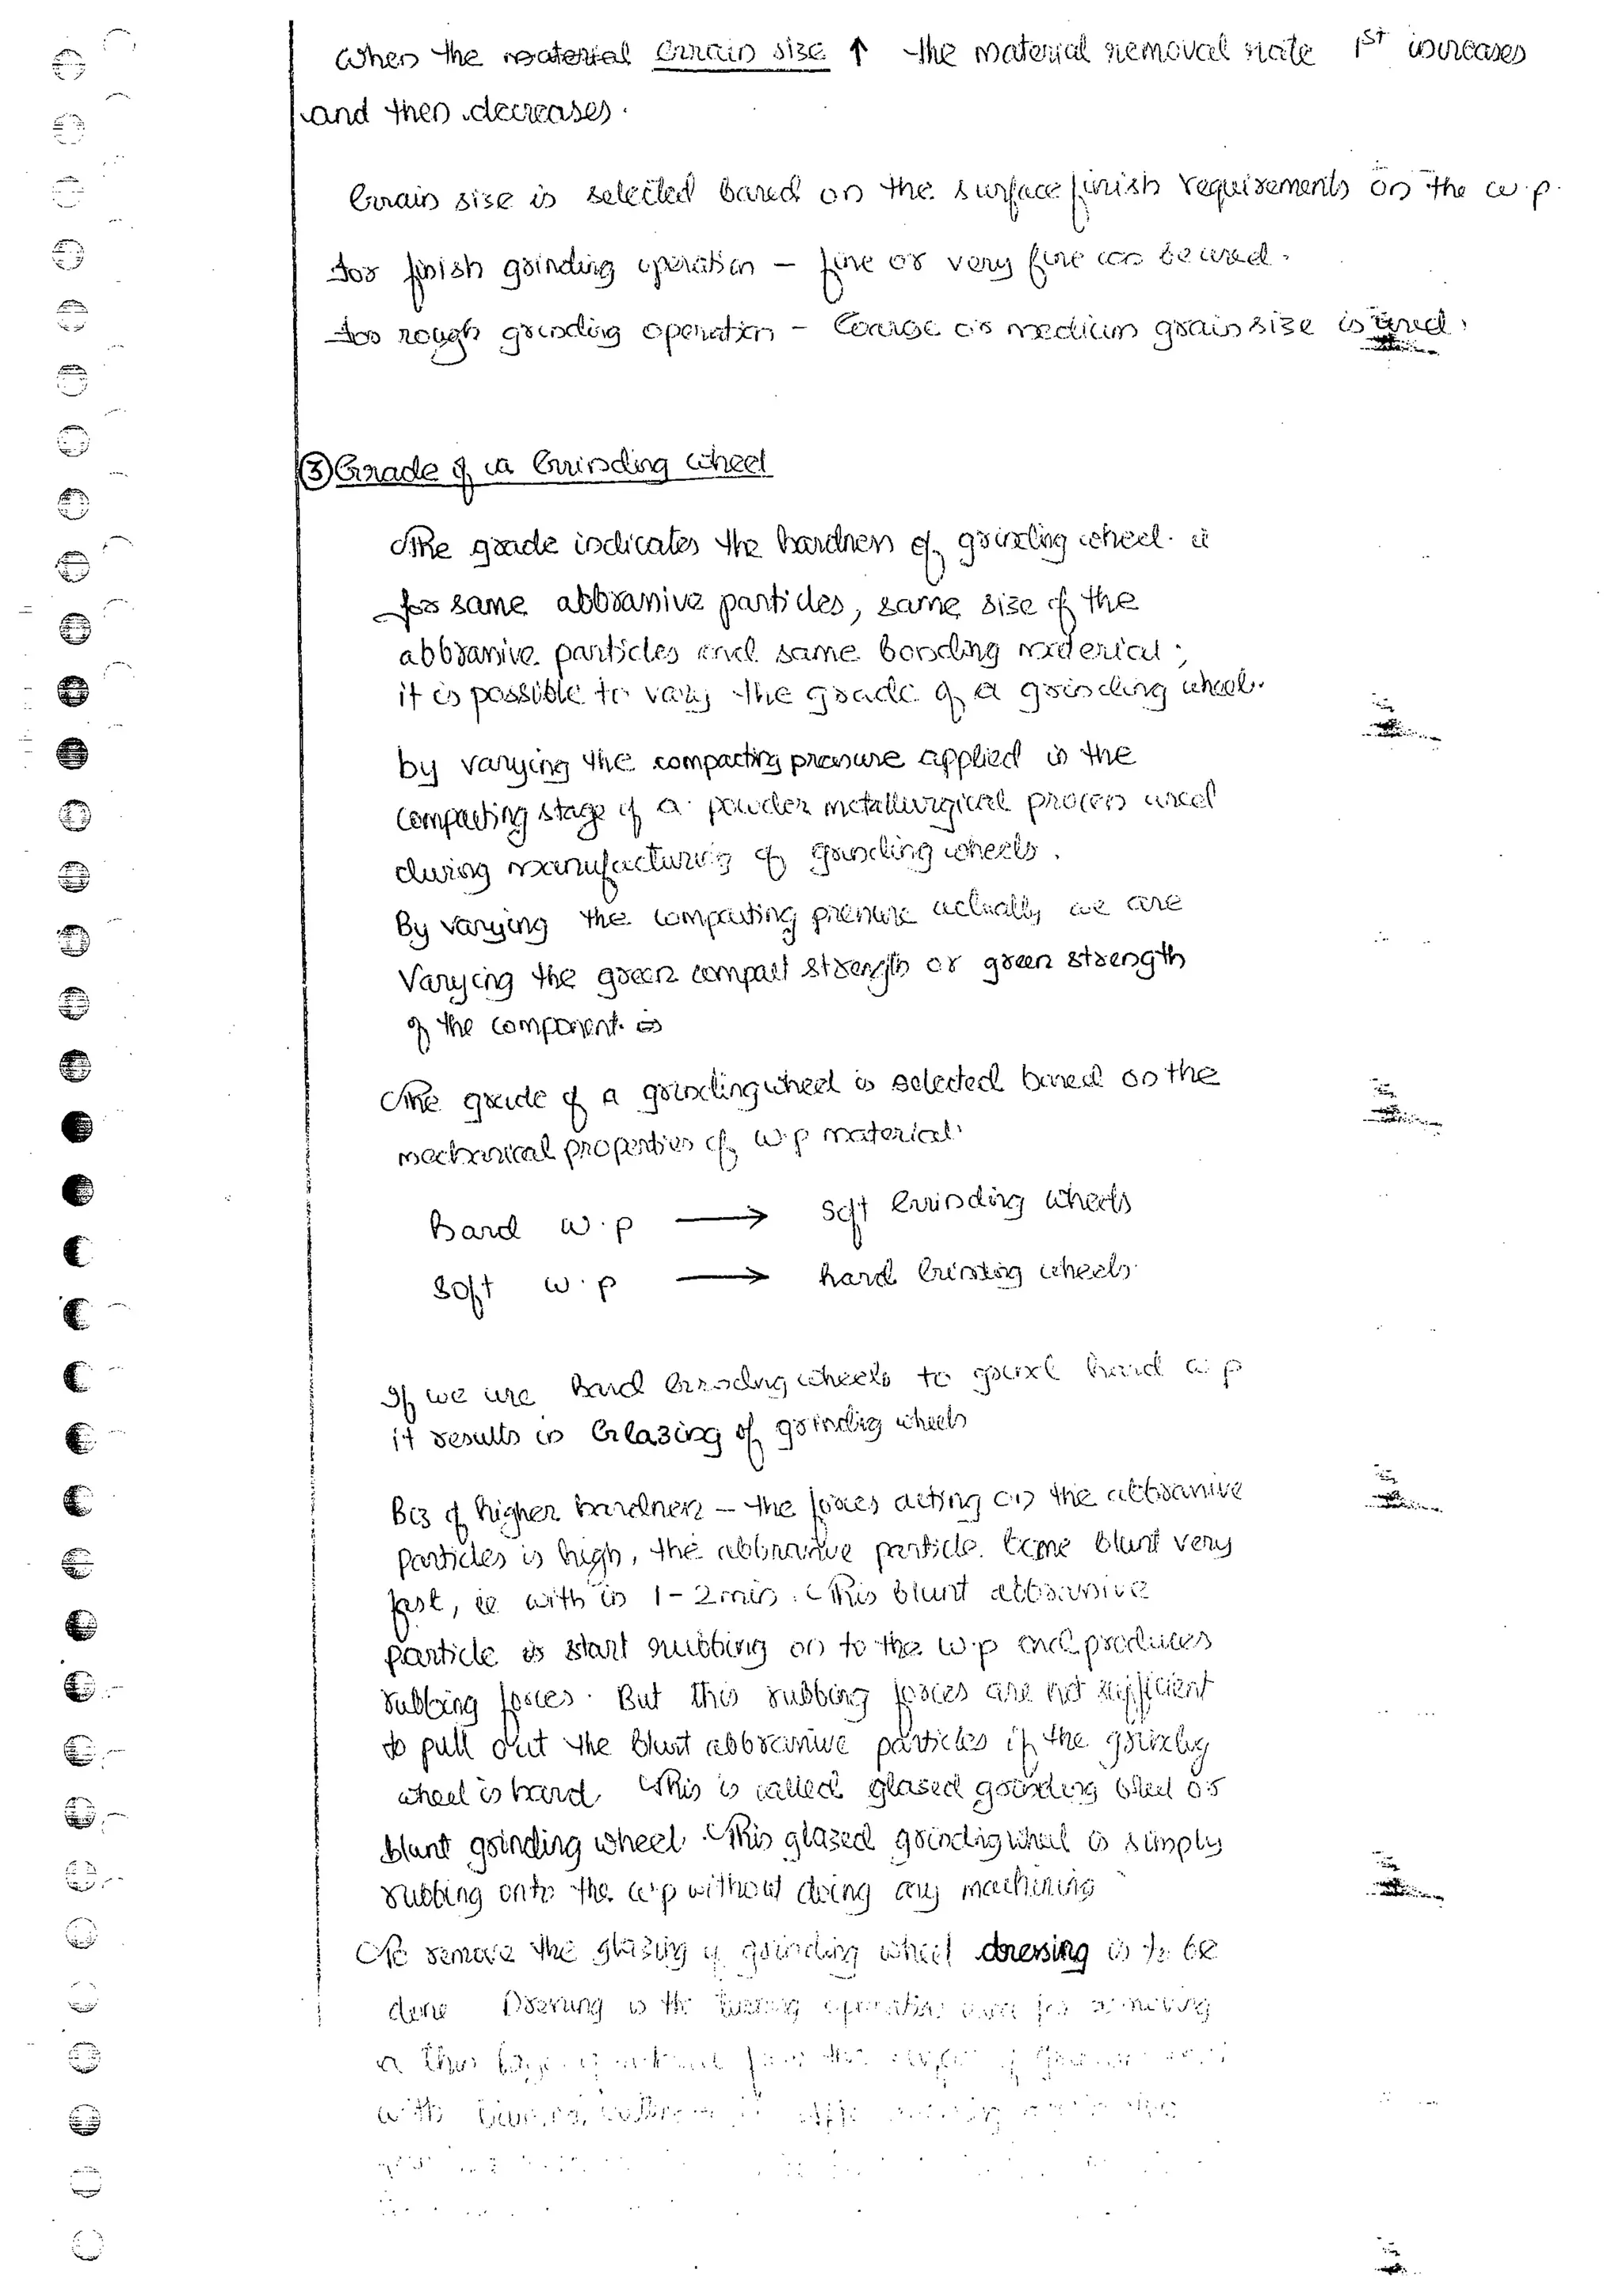 When the material Grain size ↑ the material removal rate 1st increases
and then decreases.
Grain size is selected based on the surface finish requirements on the w.p.
for finish grinding operation - fine or very fine can be used.
for rough grinding operation - Coarse or medium grain size is used.
③ Grade of a Grinding wheel
The grade indicates the hardness of grinding wheel. ie
for same abbrasive particles, same size of the
abbrasive particles and same bonding material,
it is possible to vary the grade of a grinding wheel.
by varying the compacting pressure applied in the
compacting stage of a powder metallurgical process used
during manufacturing of grinding wheels.
By varying the compacting pressure actually we are
Varying the green compact strength or green strength
of the component.
The grade of a grinding wheel is selected based on the
mechanical properties of w.p material.
Hard w.p → Soft Grinding wheels
Soft w.p → hard Grinding wheels.
If we use Hard Grinding wheels to grind hard w.p
it results in Glazing of grinding wheels
Bcz of higher hardness - the forces acting on the abbrasive
particles is high, the abbrasive particle. become blunt very
fast, ie with in 1-2 min. This blunt abbrasive
particle is start rubbing on to the w.p and produces
rubbing forces. But this rubbing forces are not sufficient
to pull out the blunt abbrasive particles if the grinding
wheel is hard. This is called glazed grinding wheel or
blunt grinding wheel. This glazed grinding wheel is simply
rubbing onto the w.p without doing any machining
To remove the glazing of grinding wheel dressing is to be
done Dressing is the turning operation used for removing
a thin layer of material from the
with